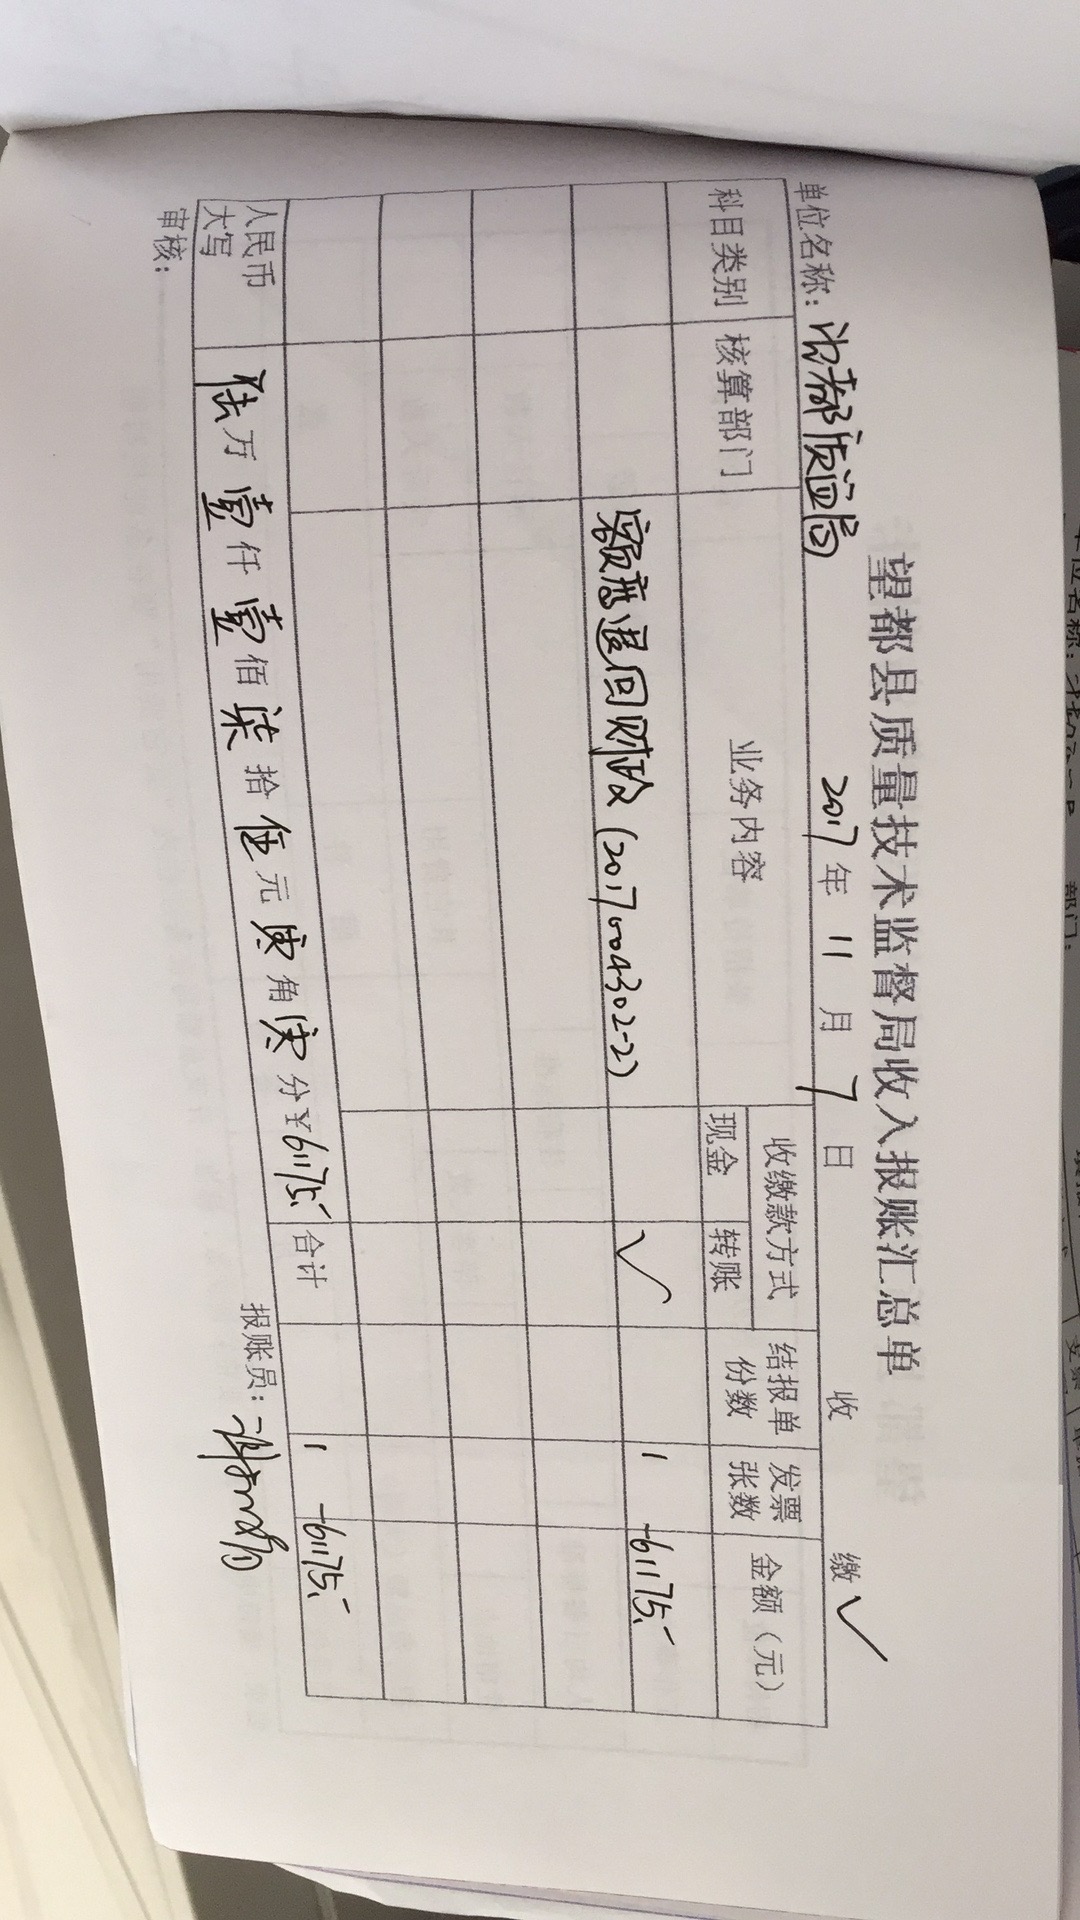 望都县质量技术监督局收入报账汇总单
收 缴 ✓
单位名称：望都质监局 2017年11月7日
科目类别 核算部门 业务内容 收缴款方式 结报单份数 发票张数 金额（元）
现金 转账
额度退回财政（2017004302-2） ✓ 1 -61175.-
合计 1 -61175.-
人民币大写 陆万壹仟壹佰柒拾伍元零角零分 ¥61175.-
审核： 报账员：